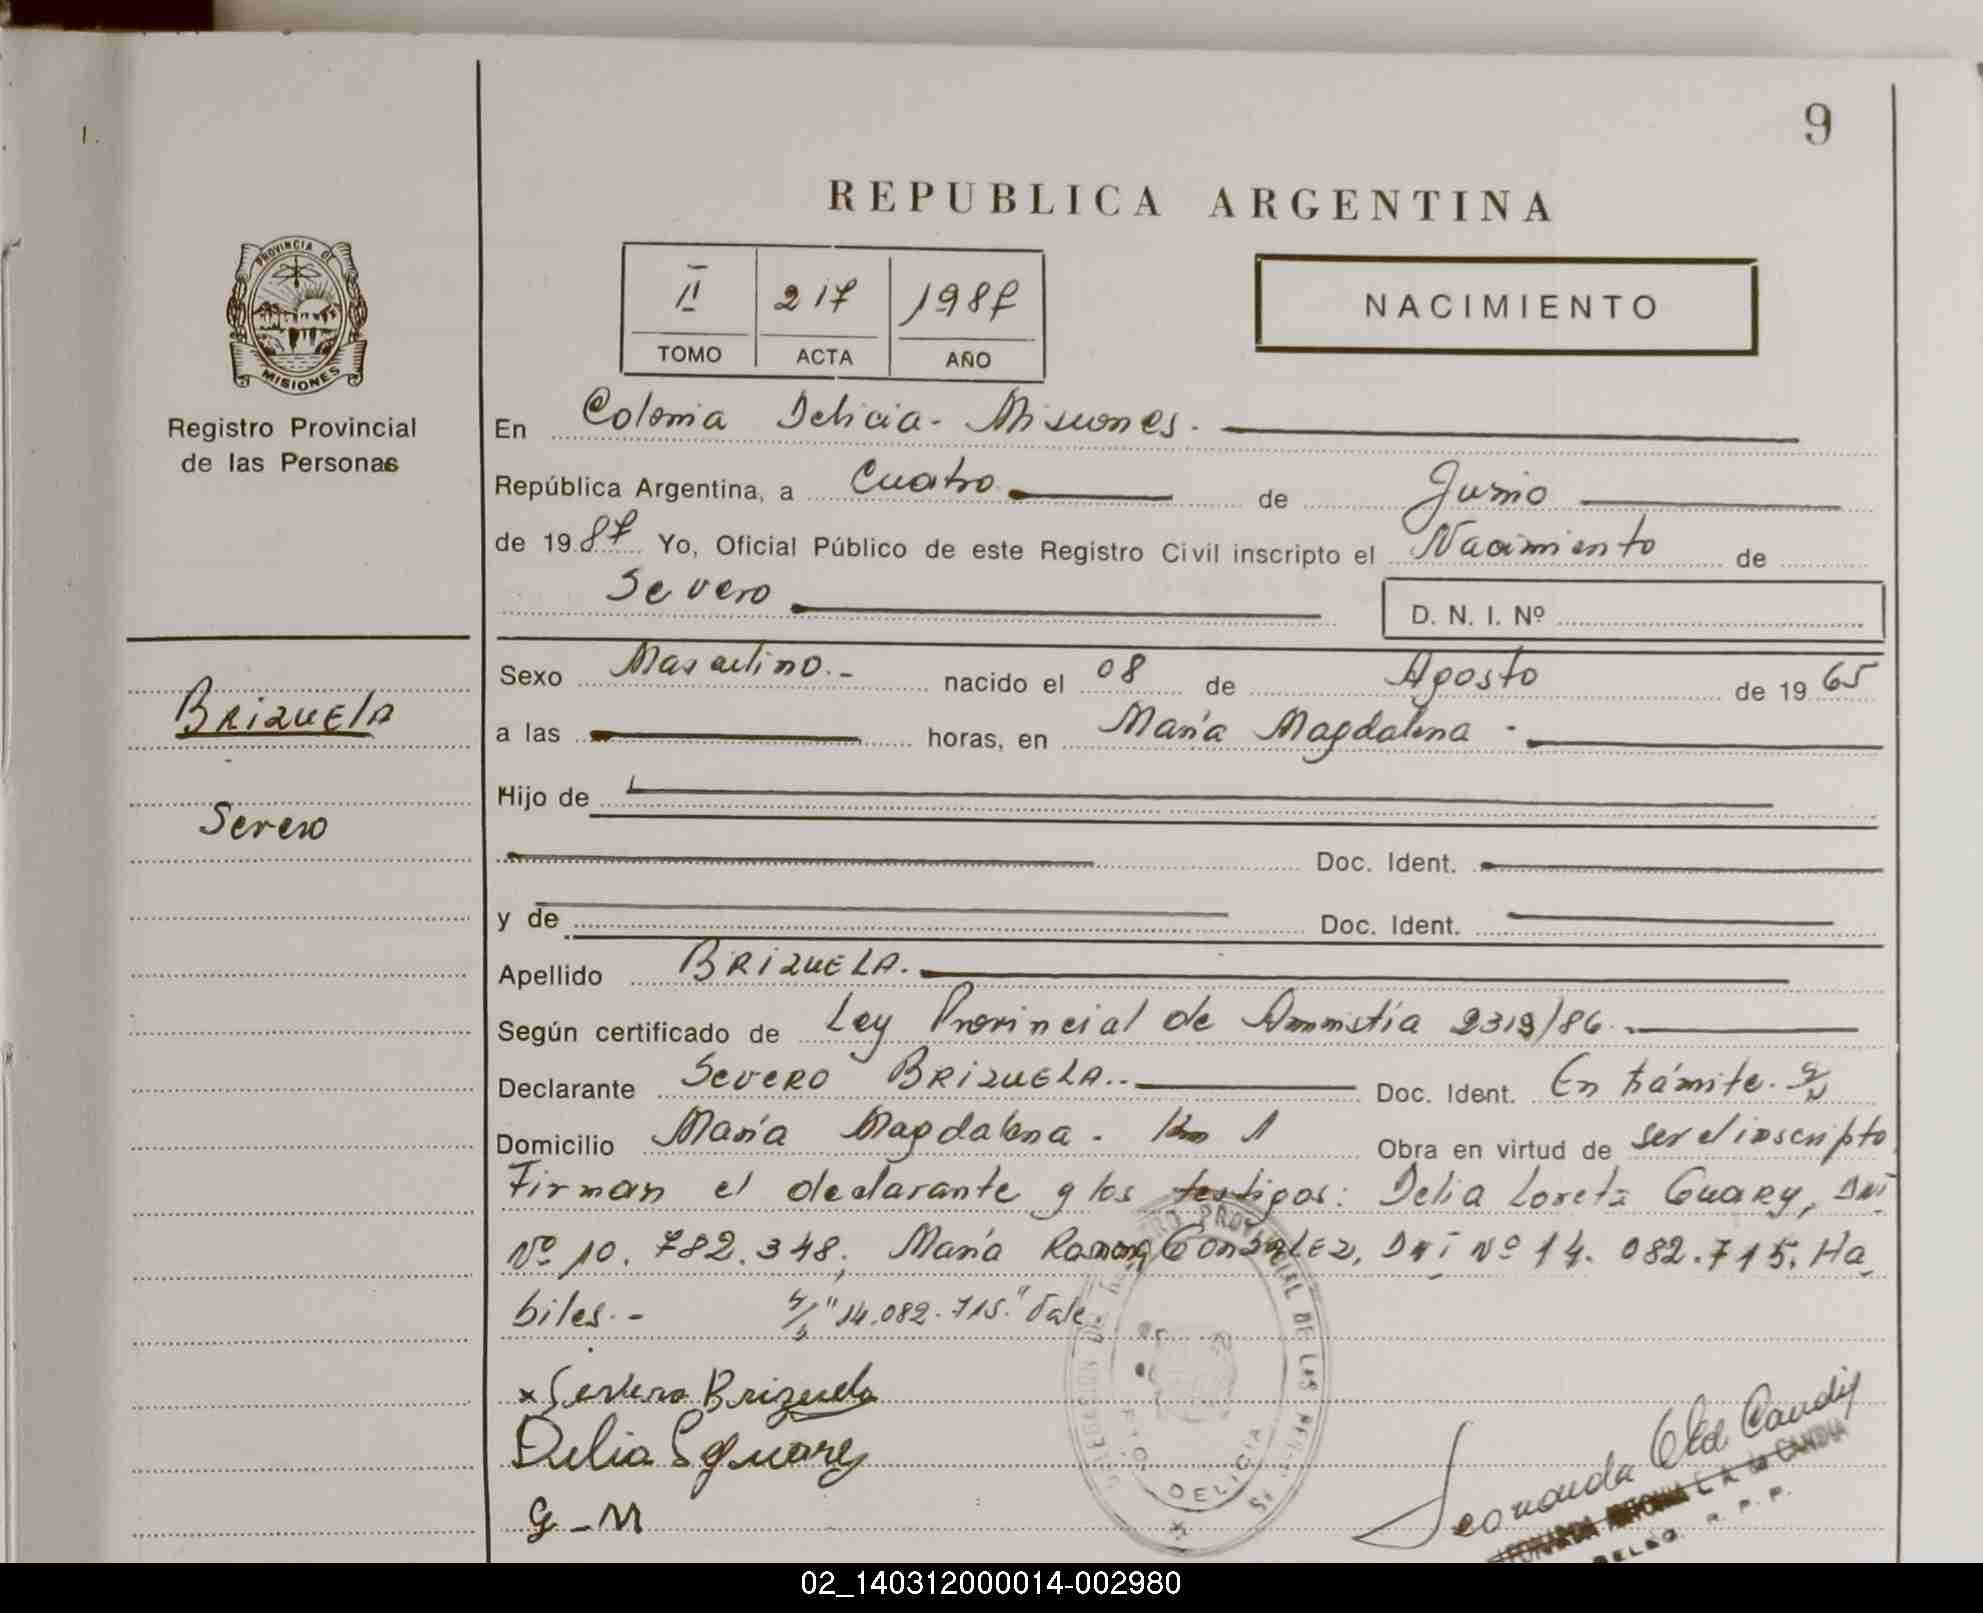 1.
9
REPUBLICA ARGENTINA
PROVINCIA DE
MISIONES
Registro Provincial
de las Personas
II 217 1987
TOMO ACTA AÑO
NACIMIENTO
En Colonia Delicia - Misiones.
República Argentina, a Cuatro de Junio
de 1987 Yo, Oficial Público de este Registro Civil inscripto el Nacimiento de
Severo D. N. I. Nº
Sexo Masculino.- nacido el 08 de Agosto de 1965
BRIZUELA
a las horas, en María Magdalena -
Hijo de
Severo
Doc. Ident.
y de Doc. Ident.
Apellido BRIZUELA.
Según certificado de Ley Provincial de Amnistía 2319/86.
Declarante Severo BRIZUELA.. Doc. Ident. En trámite.
Domicilio María Magdalena - Km 1 Obra en virtud de ser el inscripto
Firman el declarante y los testigos: Delia Loreta Guary, DNI
Nº 10.782.348, María Ramona GONZALEZ, DNI Nº 14.082.715. Ha
biles.- "14.082.715." Vale
x Severo Brizuela
Delia S Guarey
G - M
DELEGACION DEL REGISTRO PROVINCIAL DE LAS PERSONAS
DELICIA
Leonarda
LEONARDA ANTONIA L. A. de CANDIA
DELEG. R. P. P.
02_140312000014-002980